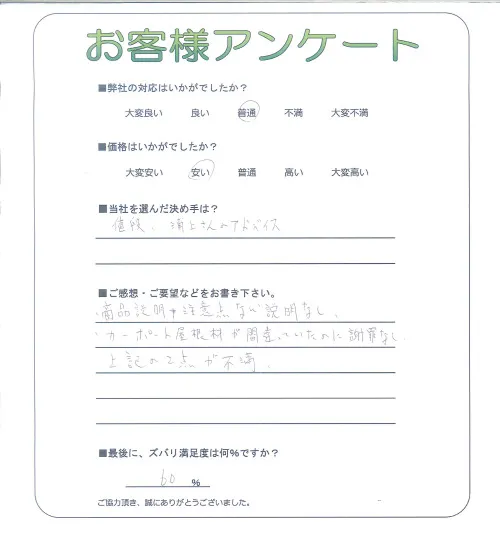 お客様アンケート
■弊社の対応はいかがでしたか？
大変良い 良い 普通 不満 大変不満
■価格はいかがでしたか？
大変安い 安い 普通 高い 大変高い
■当社を選んだ決め手は？
値段、浦上さんのアドバイス
■ご感想・ご要望などをお書き下さい。
・商品説明や注意点など説明なし、
・カーポート屋根材が間違っていたのに謝罪なし、
上記の2点が不満、
■最後に、ズバリ満足度は何%ですか？
60 %
ご協力頂き、誠にありがとうございました。